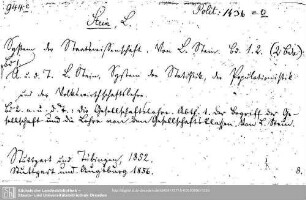 944c
Polit. 1436
Stein L.
System der Staatswissenschaft. Von L. Stein. Bd. 1. 2. (2 Bde)
Bd. 1
A. u. d. T. L. Stein, System der Statistik, der Populationistik
und der Volkswirthschaftslehre.
Bd. 2. a. u. d. T.: die Gesellschaftslehre. Abth. 1. der Begriff der Ge-
sellschaft und die Lehre von den Gesellschaftsklassen. Von L. Stein.
Stuttgart und Tübingen, 1852.
Stuttgart und Augsburg 1856.
8.